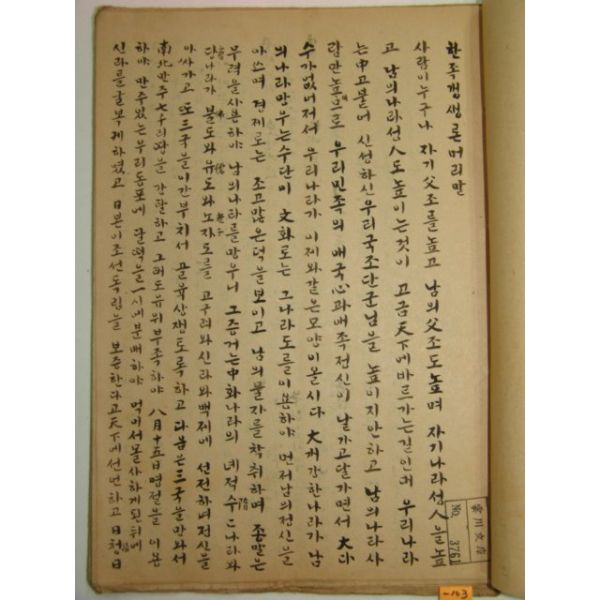 한족갱생론머리말
사람이누구나 자기父조를높고 남의父조도높며 자기나라성人을높
고 남의나라성人도높이는것이 고금天下에바르가는길인데 우리나라
는中고붙어 신성하신우리국조단군님을 높이지안하고 남의나라사
람만높으로 우리민족의 애국心과애족전신이 날가고달가면서 大다
수가없너저서 우리나라가 이제와같은모양이올시다 大개강한나라가 남
의나라망우는수단이 文화로는 그나라도를이용하야 먼저남의전신을
아스며 경제로는 조고많은덕을보이고 남의물자를착취하며 종말은
무력을사용하야 남의나라를망우니 그증거는中화나라의 녜적수나라와
당나라가 불도와유도와노자도를 고구려와신라와백제에 선전하며전신을
아싸가고 또三국을이간부치서 골육상쟁도록하고 다음은三국을망와서
南北만주七千리땅을 간탈하고 그래도유위부족하야 八月十五日명절을 이용
하야 만주있는우리동포에 달떡을一시에분배하야 먹이서몰사하게된뒤에
신라를굴복케하였고 日본이조선독립을 보증한다고天下에선언하고 日청日
隋
佛
儒
老子
No. 3761
-163